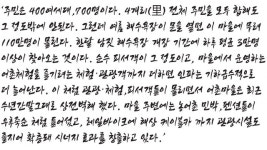 '주민은 400여세대, 700명이다. 4개리(里) 전체 주민을 모두 합해도
그 정도밖에 안된다. 그런데 여름 해수욕장이 문을 열면 이 마을에 무려
110만명이 몰린다. 한달 남짓 해수욕장 개장 기간에 하루 평균 3만명
이상이 찾아오는 것이다. 순수 피서객이 그 정도이고, 마을에서 운영하는
어촌체험을 즐기려는 체험·관광객까지 더하면 인파는 기하급수적으로
더 늘어난다. 이 처럼 관광·체험, 피서객들이 몰리면서 어촌마을은 최근
수년간 말그대로 상전벽해 했다. 마을 주변에는 농어촌 민박, 펜션들이
우후죽순 처럼 들어섰고, 레일바이크에 해상 케이블카 까지 관광시설도
줄지어 확충돼 시너지 효과를 창출하고 있다.'